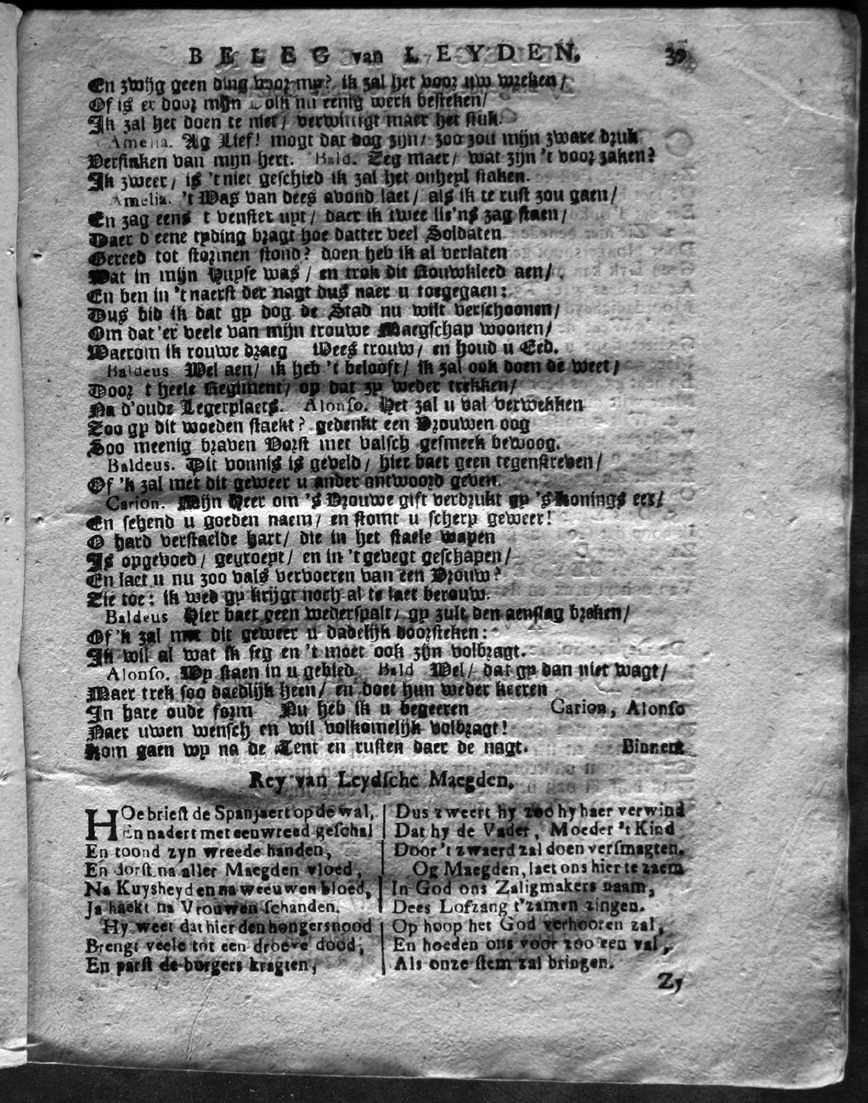 BELEG van LEYDEN. 39
En zwijg geen ding voor my? ik zal het voor uw wreken/
Of is er door mijn olk nu eenig werk besteken/
Ik zal het doen te niet/ verwittigt maer het stuk.
Amelia. Ag Lief! mogt dat dog zijn/ zoo zou mijn zware druk
Versinken van mijn hert. Bald. Zeg maer/ wat zijn 't voor zaken?
Ik zweer/ is 't niet geschied ik zal het onheyl staken.
Amelia. 't Was van dees avond laet/ als ik te rust zou gaen/
En zag eens 't venster uyt/ daer ik twee lie'ns zag staen/
Daer d'eene tyding bragt hoe datter veel Soldaten
Gereed tot stormen stond? doen heb ik al verlaten
Wat in mijn Huyse was/ en trok dit Rouwkleed aen/
En ben in 't naerst der nagt dus naer u toegegaen:
Dus bid ik dat gy dog de Stad nu wilt verschoonen/
Om dat 'er veele van mijn trouwe Maegschap woonen/
Waerom ik rouwe draeg Wees trouw/ en houd u Eed.
Baldeus Wel aen/ ik heb 't belooft/ ik zal ook doen de weet/
Door 't heele Regiment/ op dat zy weder trekken/
Na d'oude Legerplaets. Alonso. Het zal u val verwekken
Zoo gy dit woeden staekt? gedenkt een Vrouwen oog
Soo meenig braven Vorst met valsch gesmeek bewoog.
Baldeus. Dit vonnis is geveld/ hier baet geen tegenstreven/
Of 'k zal met dit geweer u ander antwoord geven.
Carion. Mijn Heer om 's Vrouwe gift verdrukt gy 's Konings eer/
En schend u goeden naem/ en stomt u scherp geweer!
O hard verstaelde hart/ die in het staele wapen
Is opgevoed/ geyroept/ en in 't gevegt geschapen/
En laet u nu zoo vals vervoeren van een Vrouw?
Zie toe: ik wed gy krijgt noch al te laet berouw.
Baldeus Hier baet geen wederspalt/ gy zult den aenslag breken/
Of 'k zal met dit geweer u dadelijk doorsteken:
Ik wil al wat ik seg en 't moet ook zijn volbragt.
Alonso. Wy staen in u gebied. Bald Wel/ dat gy dan niet wagt/
Maer trek soo daedlijk heen/ en doet hun weder keeren
In hare oude form Nu heb ik u begeeren Carion, Alonso
Naer uwen wensch en wil volkomelijk volbragt!
Kom gaen wy na de Tent en rusten daer de nagt. Binnen
Rey van Leydsche Maegden.
HOe briest de Spanjaert op de wal,
En nadert met een wreed geschal
En toond zyn wreede handen,
En dorst na aller Maegden vloed,
Na Kuysheyd en na weeuwen bloed,
Ja haekt na Vrouwen schanden.
Hy weet dat hier den hongersnood
Brengt veele tot een droeve dood,
En parst de burgers kragten,
Dus zweert hy zoo hy haer verwind
Dat hy de Vader, Moeder 't Kind
Door 't zwaerd zal doen versmagten.
Og Maegden, laet ons hier te zaem
In God ons Zaligmakers naam,
Dees Lofzang t'zamen zingen.
Op hoop het God verhooren zal,
En hoeden ons voor zoo een val,
Als onze stem zal bringen.
Zy